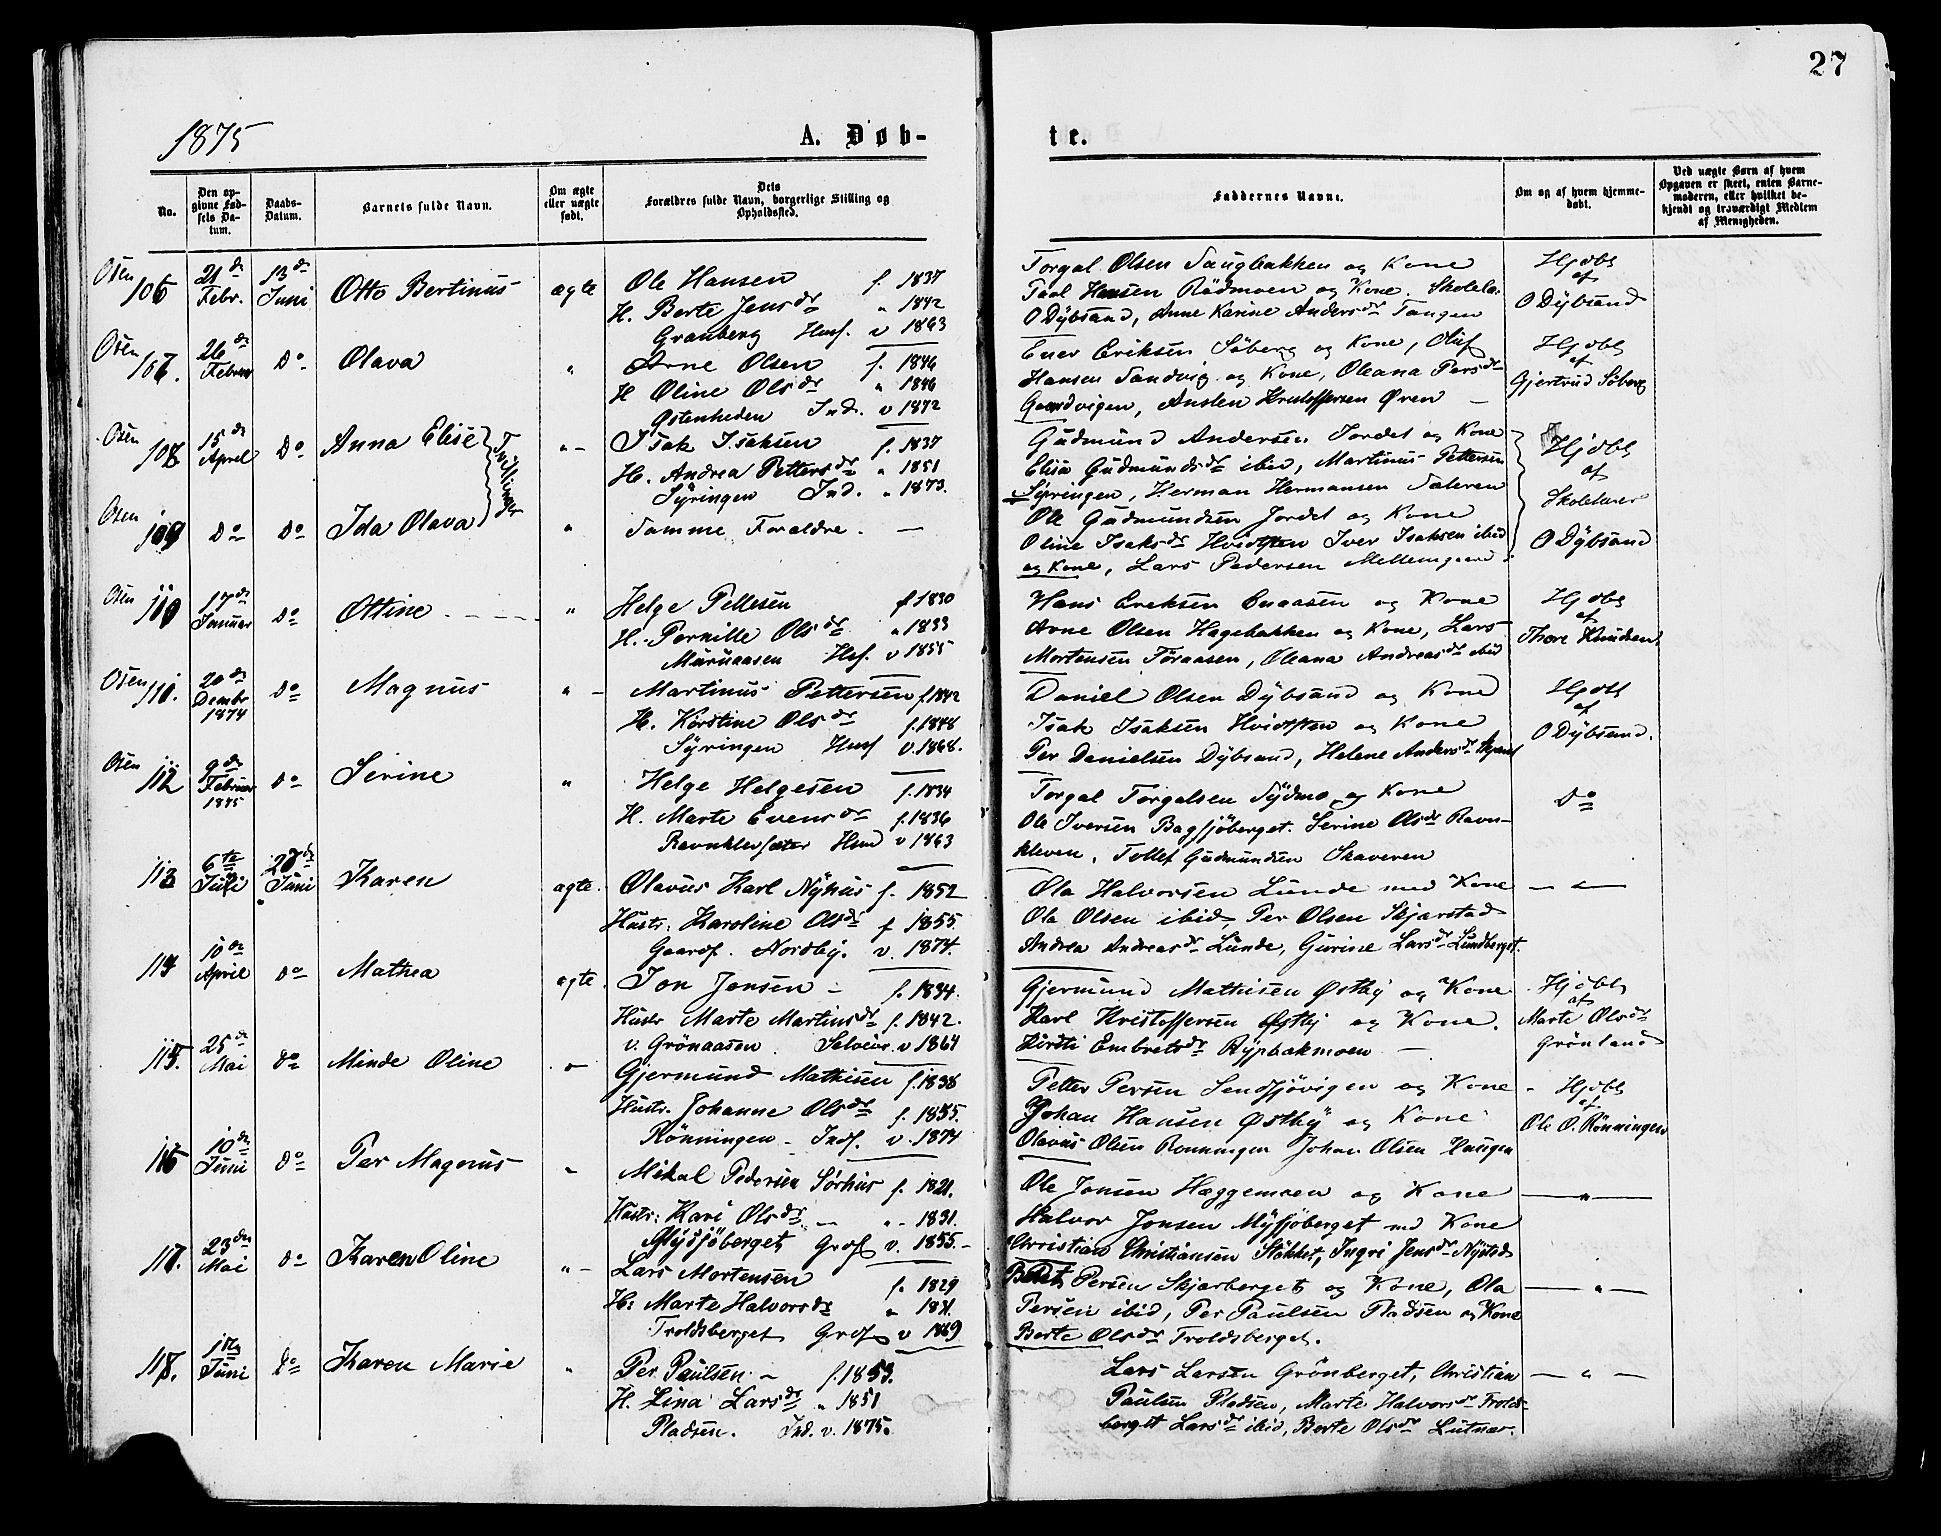 27
1875
A. Døb-
te.
No.
Den op-
givne Fød-
sels Da-
tum.
Daabs-
Datum.
Barnets fulde Navn.
Om ægte
eller uægte
født.
Dets
Forældres fulde Navn, borgerlige Stilling og
Opholdssted.
Faddernes Navne.
Om og af hvem hjemme-
døbt.
Ved uægte Børn af hvem
Opgaven er skeet, enten Barne-
moderen, eller hvilket be-
kjendt og troværdigt Medlem
af Menigheden.
Osen 106 21de Febr. 13de Juni Otto Bertinus ægte
Ole Hansen f. 1837
H. Berte Jensdr " 1842
Granberg Husf. v 1863
Torgal Olsen Haugbakken og Kone
Paal Hansen Rødmoen og Kone. Skolelr.
O Dÿbsand, Anne Karine Andersdr Tangen
Hjdbt
af
O Dÿbsand
Osen 107. 26de Februar Do Olava "
Arne Olsen f. 1846
H Oline Olsdr " 1846
Østenheden Ind. v 1872
Ener Eriksen Søberg og Kone, Oluf
Hansen Sandvig og Kone, Oleana Persdr
Gaardvigen, Anslen Kristoffersen Øren
Hjdbt
af
Gjertrud Søberg
Osen 108 15de April Do Anna Elise Tvillinger " -
Isak Isaksen f. 1837
H. Andrea Pettersdr " 1851
Sÿringen Ind. " 1873.
Gudmund Andersen Jordet og Kone
Elise Gudmundsdr ibid, Martinus Pettersen
Sÿringen, Herman Hermansen Sæteren
Hjdbt
af
Skolelærer
O Dÿbsand
Osen 109 Do Do Ida Olava "
Samme Forældre. —
Ole Gudmundsen Jordet og Kone
Oline Isaksdr Hvidsten Iver Isaksen ibid
og Kone, Lars Pedersen Mellemgaard
Osen 110 17de Januar Do Ottine "
Helge Pellesen f 1830
H. Pernille Olsdr " 1833
Muruaasen Husf. v 1855
Hans Ereksen Enaasen og Kone
Arne Olsen Hagebakken og Kone, Lars
Mortensen Furaasen, Oleana Andreasdr ibid
Hjdbt
af
Thore Knudsen
Osen 111. 20de Decmbr 1874 Do Magnus " -
Martinus Pettersen f. 1842
H. Kirstine Olsdr f. 1848
Sÿringen Husf v. 1868.
Daniel Olsen Dÿbsand og Kone
Isak Isaksen Hvidsten og Kone
Per Danielsen Dÿbsand, Helene Andersdr
Hjdbt
af
O Dÿbsand.
Osen 112 9de Februar 1875 Do Serine "
Helge Helgesen f. 1834
H. Marte Evensdr f. 1836
Ravnklevsæter Husm v 1863
Torgal Torgalsen Nÿdmo og Kone
Ole Iversen Bagsjöberget. Serine Olsdr Ravn-
kleven, Tollef Gudmundsen Skaveren
Do
113 6te Juli 27de Juni Karen ægte.
Olavus Karl Nÿhus f. 1852
Hustr: Karoline Olsdr f 1855
Gaardf. Nordbÿ. v. 1874.
Ola Halvorsen Lunde med Kone
Ola Olsen ibid, Per Olsen Skjærstad
Andrea Andreasdr Lunde, Gurine Larsdr Lundberget.
— " —
114 10de April Do Mathea ægte.
Jon Jensen f. 1834.
Hustr Marte Martinsdr f. 1842.
v. Grönaasen Selveier v 1864
Gjermund Mathisen Østbÿ og Kone
Karl Kristoffersen Østbÿ og Kone.
Kirsti Embretsdr Rÿpbakmoen
Hjdbt
af
Marte Olsdr
Grönland
115. 25de Mai Do Minde Oline "
Gjermund Mathisen f. 1838
Hustr. Johanne Olsdr f. 1835.
Rönningen - Indf. v. 1874
Petter Persen Sendsjövigen og Kone
Johan Hansen Østbÿ og Kone
Olavus Olsen Ronningen Johan Olsen Haugen
Hjdbt
af
Ole O. Rönningen
116 10de Juni Do Per Magnus "
Mikal Pedersen Sörhus f. 1821.
Hustr: Kari Olsdr " 1831.
Mÿsjöberget Grdf v. 1855. -
Ole Jonsen Hæggemoen og Kone
Halvor Jonsen Mÿsjöberget med Kone
Christian Christiansen Stökket, Ingri Jensdr Nÿsted
— " —
117. 23de Mai Do Karen Oline " -
Lars Mortensen f. 1829
H: Marte Halvorsdr
Troldsberget Grdf v 1869
Persen Skjærberget og Kone, Ola
Persen ibid, Per Paulsen Pladsen og Kone
Berte Olsdr Troldsberget.
— " —
118. 1ste Juni Do Karen Marie "
Per Paulsen - f. 1853.
H. Lina Larsdr " 1851
Pladsen. Ind. v. 1875.
Lars Larsen Grönberget, Christian
Paulsen Pladsen, Marte Halvorsdr Trolds-
berget Larsdr ibid, Berte Olsdr Lutnes.
— " —